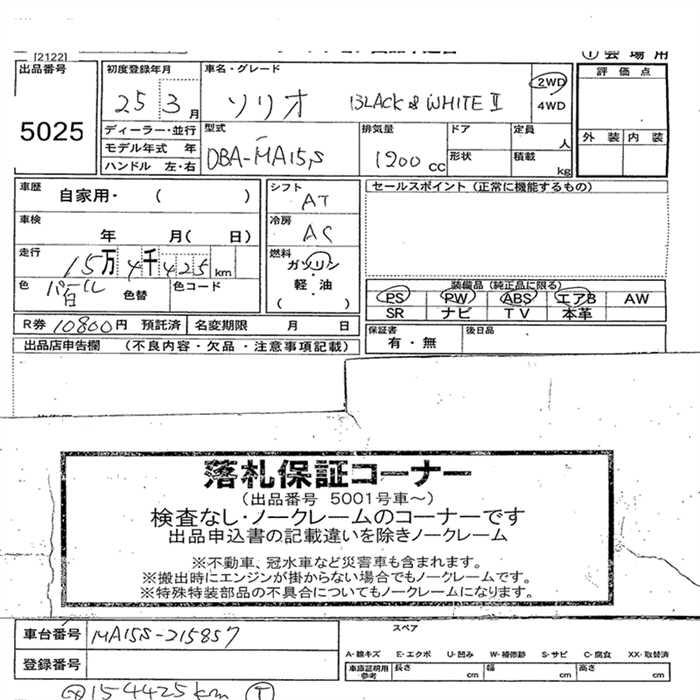 [2122]
① 会 場 用
出品番号 初度登録年月 車名・グレード 評 価 点
5025 25 3 月 ソリオ BLACK & WHITE Ⅱ 2WD
4WD
ディーラー・並行 型式 排気量 ドア 定員 人 外 装 内 装
モデル年式 年 DBA-MA15S 1200 cc 形状 積載 kg
ハンドル 左・右
車歴 自家用・ ( ) シフト AT セールスポイント (正常に機能するもの)
車検 年 月( 日) 冷房 AC
走行 15万4千425km 燃料 ガソリン
軽・油
( )
色 パール白 色替 色コード
装備品 (純正品に限る)
PS PW ABS エアB AW
SR ナビ TV 本革
R券 10800円 預託済 名変期限 月 日 保証書 有・無 後日品
出品店申告欄 (不良内容・欠品・注意事項記載)
落札保証コーナー
(出品番号 5001号車~)
検査なし・ノークレームのコーナーです
出品申込書の記載違いを除きノークレーム
※不動車、冠水車など災害車も含まれます。
※搬出時にエンジンが掛からない場合でもノークレームです。
※特殊特装部品の不具合についてもノークレームになります。
車台番号 MA15S-215857 スペア
登録番号
A-線キズ E-エクボ U-凹み W-補修跡 S-サビ C-腐食 XX-取替済
車庫証明用参考 長さ cm 幅 cm 高さ cm
154425km ①